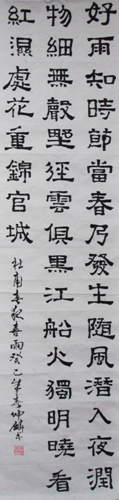 好雨知時節當春乃發生隨風潛入夜潤
物細無聲野徑雲俱黑江船火獨明曉看
紅濕處花重錦官城
杜甫春夜喜雨癸巳年